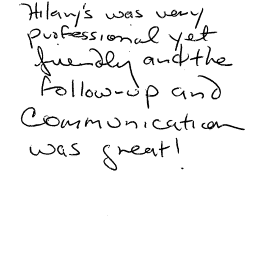 Hilary's was very
professional yet
friendly and the
follow-up and
Communication
was great!